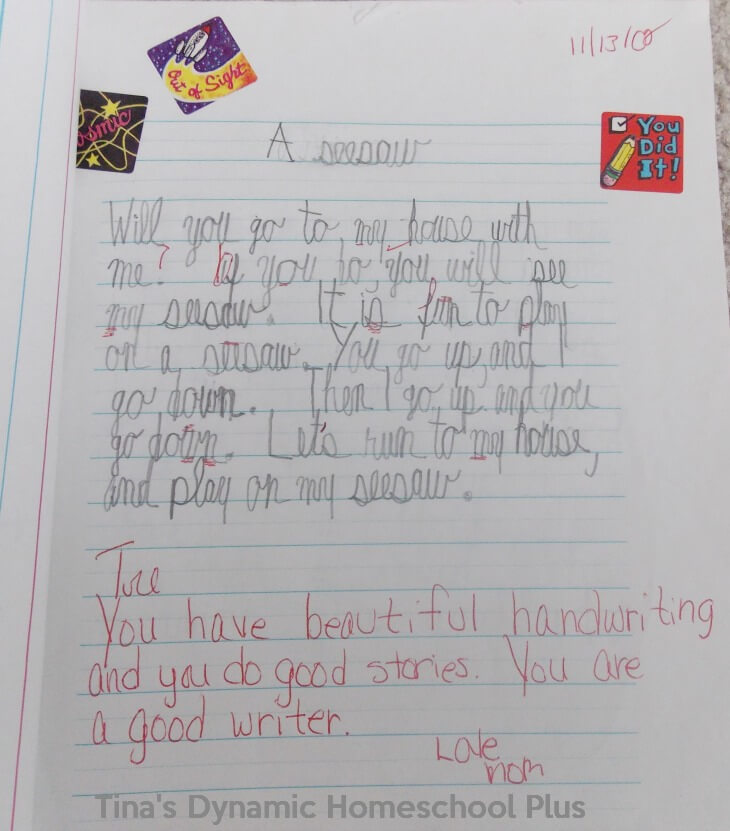 11/13/00
Out of Sight
osmic
You
Did
It!
A seesaw
Will you go to my house with
me? If you do, you will see
my seesaw. It is fun to play
on a seesaw. You go up, and I
go down. Then I go up and you
go down. Let's run to my house,
and play on my seesaw.
You have beautiful handwriting
and you do good stories. You are
a good writer.
Love
mom
Tina's Dynamic Homeschool Plus